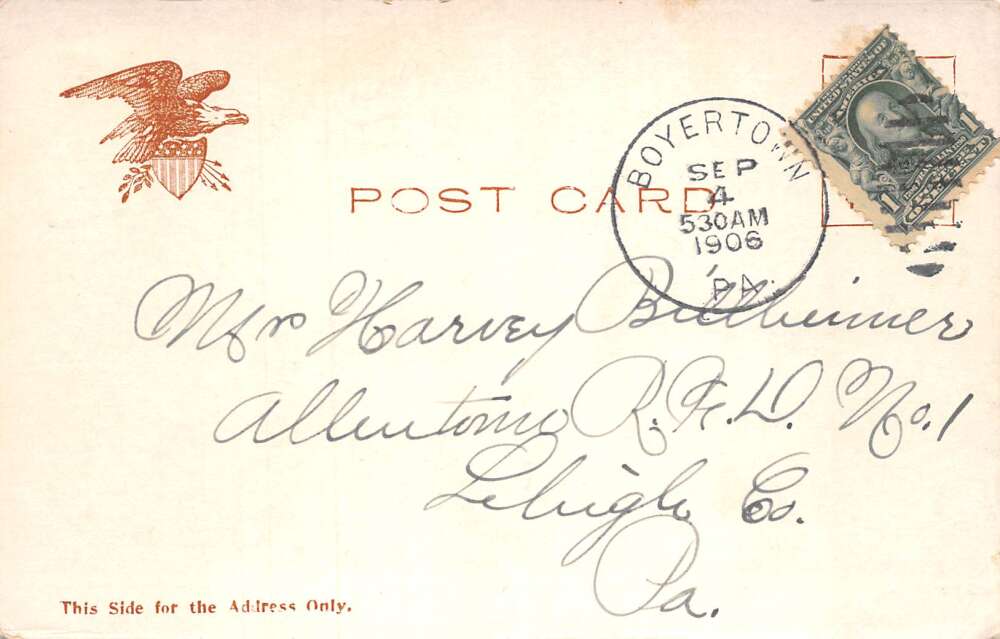 POST CARD
BOYERTOWN
SEP
4
530AM
1906
PA.
UNITED STATES OF
AMERICA
1 1
Mrs Harvey Bittheimer
Allentown R.F.D. No.1
Lehigh Co.
Pa.
This Side for the Address Only.